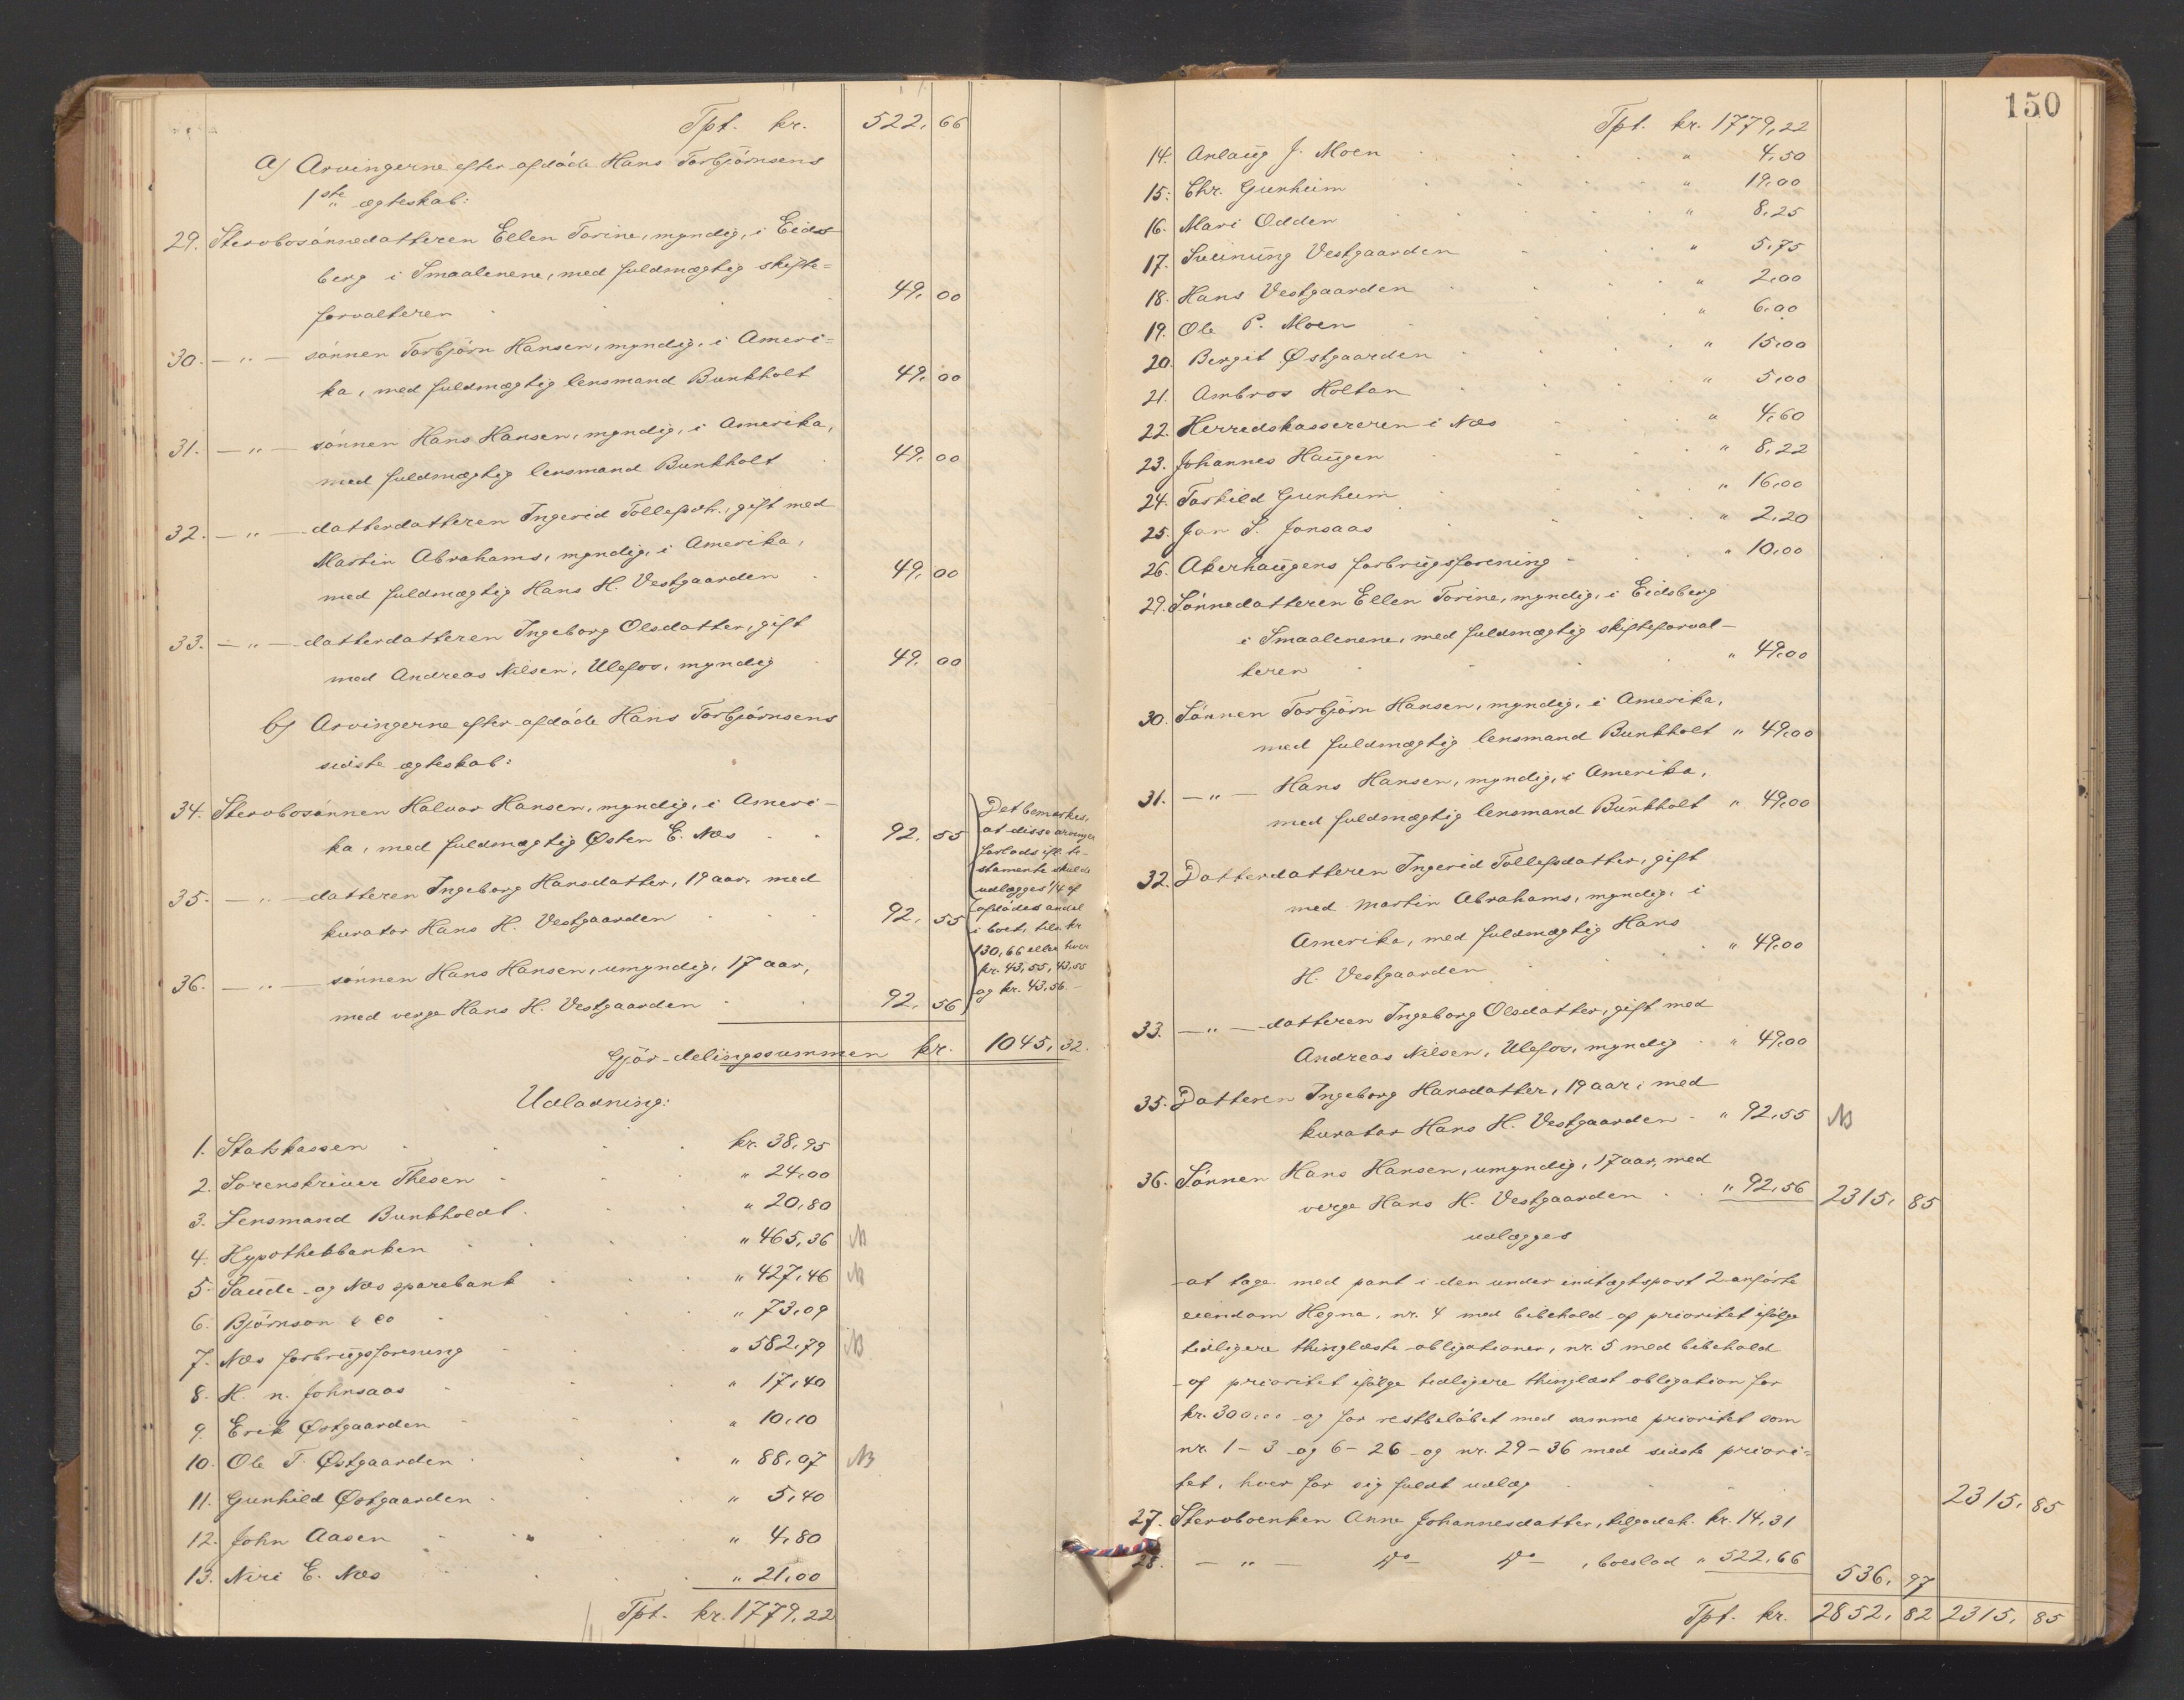 Tpt. kr. 522,66
a) Arvingerne efter afdöde Hans Torbjörnsens
1ste ægteskab:
29. Stervbosönnedatteren Ellen Torine, myndig, i Eids-
berg i Smaalenene, med fuldmægtig skifte=
forvalteren 49,00
30. —„— sönnen Torbjörn Hansen, myndig, i Ameri=
ka, med fuldmægtig lensmand Bunkholt 49,00
31. —„— sönnen Hans Hansen, myndig, i Amerika,
med fuldmægtig lensmand Bunkholt 49,00
32. —„— datterdatteren Ingerid Tollefsdtr., gift med
Martin Abrahams, myndig, i Amerika,
med fuldmægtig Hans H. Vestgaarden 49,00
33. —„— datterdatteren Ingeborg Olsdatter, gift
med Andreas Nilsen, Ulefos, myndig 49,00
b) Arvingerne efter afdöde Hans Torbjörnsens
sidste ægteskab:
34. Stervbosönnen Halvor Hansen, myndig, i Ameri-
ka, med fuldmægtig Østen E. Næs 92,55
35. —„— datteren Ingeborg Hansdatter, 19 aar, med
kurator Hans H. Vestgaarden 92,55
36. —„— sönnen Hans Hansen, umyndig, 17 aar,
med verge Hans H. Vestgaarden 92,56
Det bemærkes,
at disse arvinger
forlods ifl. te-
stamente skulde
udlægges 1/4 af
afdödes andel
i boet, tils. kr
130,66 eller hver
kr. 43,55, 43,55
og kr. 43,56. -
Gjör delingssummen kr. 1045,32.
Udladning:
1. Statskassen kr. 38,95
2. Sorenskriver Thesen „ 24,00
3. Lensmand Bunkholdt „ 20,80
4. Hypothekbanken „ 465,36 N
5. Saude og Næs sparebank „ 427,46 N
6. Björnson & Co „ 73,09
7. Næs forbrugsforening „ 582,79 N
8. H. N. Johnsaas „ 17,40
9. Erik Østgaarden „ 10,10
10. Ole T. Østgaarden „ 88,07 N
11. Gunhild Østgaarden „ 5,40
12. John Aasen „ 4,80
13. Niri E. Næs „ 21,00
Tpt. kr. 1779,22
150
Tpt. kr. 1779,22
14. Anlaug J. Moen „ 4,50
15. Chr. Gunheim „ 19,00
16. Mari Odden „ 8,25
17. Sveinung Vestgaarden „ 5,75
18. Hans Vestgaarden „ 2,00
19. Ole P. Moen „ 6,00
20. Bergit Østgaarden „ 15,00
21. Ambros Holtan „ 5,00
22. Herredskassereren i Næs „ 4,60
23. Johannes Haugen „ 8,22
24. Torkild Gunheim „ 16,00
25. Jon S. Jonsaas „ 2,20
26. Akerhaugens forbrugsforening „ 10,00
29. Sönnedatteren Ellen Torine, myndig, i Eidsberg
i Smaalenene, med fuldmægtig skifteforval-
teren „ 49,00
30. Sönnen Torbjörn Hansen, myndig, i Amerika,
med fuldmægtig lensmand Bunkholt „ 49,00
31. —„— Hans Hansen, myndig, i Amerika,
med fuldmægtig lensmand Bunkholt „ 49,00
32. Datterdatteren Ingerid Tollefsdatter, gift
med Martin Abrahams, myndig, i
Amerika, med fuldmægtig Hans
H. Vestgaarden „ 49,00
33. —„— datteren Ingeborg Olsdatter, gift med
Andreas Nilsen, Ulefos, myndig „ 49,00
35. Datteren Ingeborg Hansdatter, 19 aar, med
kurator Hans H. Vestgaarden „ 92,55 N
36. Sönnen Hans Hansen, umyndig, 17 aar, med
verge Hans H. Vestgaarden „ 92,56 2315,85
udlægges
at tage med pant i den under indtægtspost 2 anförte
eiendom Hegna, nr. 4 med bibehold af prioritet ifølge
tidligere thinglæste obligationer, nr. 5 med bibehold
af prioritet ifölge tidligere thinglæst obligation for
kr. 300,00 og for restbelöbet med samme prioritet som
nr. 1-3 og 6-26 og nr. 29-36 med sidste priori=
tet, hver for sig fuldt udlæg 2315,85
27. Stervboenken Anne Johannesdatter, tilgodeh. kr. 14,31
28. —„— do do, boeslod „ 522,66 536,97
Tpt. kr. 2852,82 2315,85